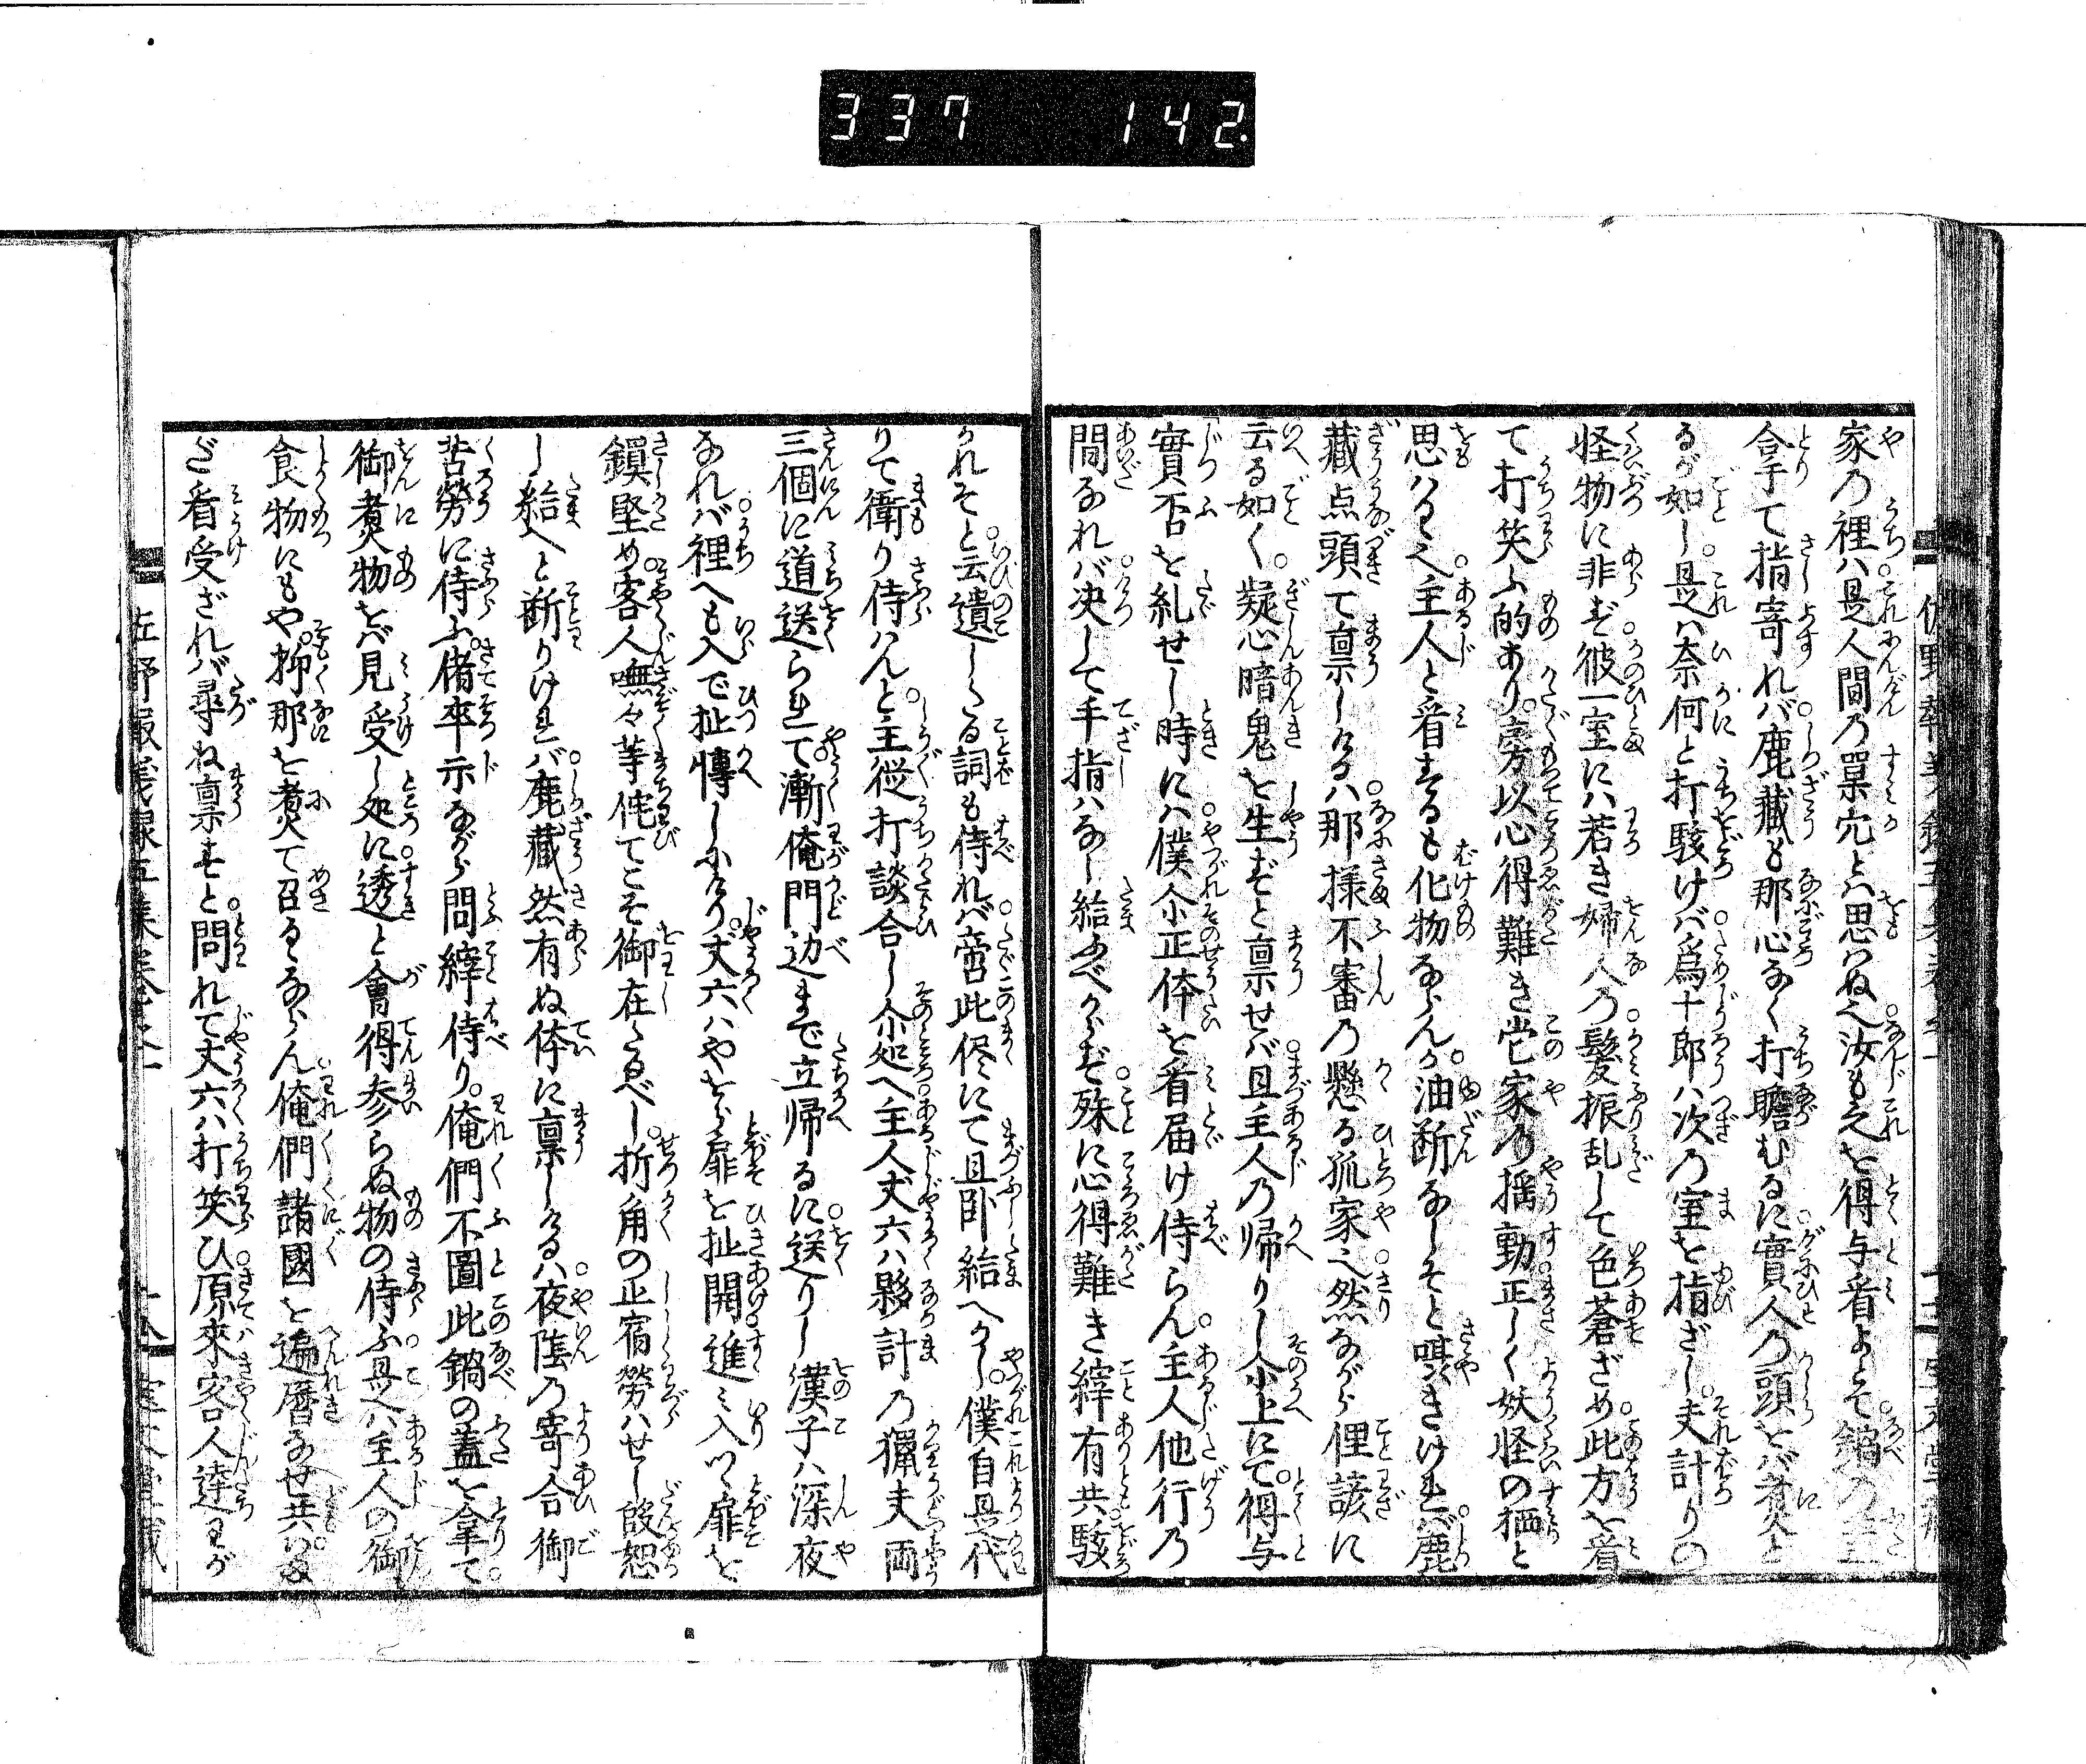 337 142
家乃裡ハ是人間乃巣穴とハ思ハぬ之汝も之を得与看よとて鍋乃蓋
拿て指寄れバ鹿藏も那心なく打瞻むるに實人乃頭をバ煑と
るが如し是ハ奈何と打駭けバ爲十郎ハ次乃室を指ざし夫計りの
怪物に非ず彼一室にハ若き婦人乃髮振乱して色蒼ざめ此方を看
て打笑ふ的あり旁以心得難き此家乃揺動正しく妖怪の栖と
思ハる之主人と看するも化物ならんか油断なしそと囁きけれバ鹿
藏点頭て禀しけるハ那様不審乃懸る孤家之然ながら俚諺に
云る如く疑心暗鬼を生ずと禀せバ且主人乃帰りし尒上にて得与
實否を糺せし時にハ僕尒正体を看届け侍らん主人他行乃
間なれバ决して手指ハなし給ふべからず殊に心得難き縡有共駭
かれそと云遺したる詞も侍れバ啻此侭にて且卧給へかし僕自是代
りて衛り侍ハんと主從打談合し尒処へ主人丈六ハ夥計乃獵夫両
三個に道送られて漸俺門边まで立帰るに送りし漢子ハ深夜
なれバ裡へも入で扯慱しふけり丈六ハやをら扉を扯開進ミ入つゝ扉を
鎖堅め客人嘸々等侘てこそ御在たるべし折角の止宿勞ハせし段恕
し給へと断りけれバ鹿藏然有ぬ体に禀しけるハ夜陰乃寄合御
苦勞に侍ふ偖卒示ながら問縡侍り俺們不圖此鍋の蓋を拿て
御煑物をバ見受し処に透と會得参らぬ物の侍ふ是ハ主人の御
食物にもや抑那を煑て召るゝならん俺們諸國を遍曆なせ共いま
ざ看受ざれバ尋ね禀すと問れて丈六ハ打笑ひ原來客人達わが